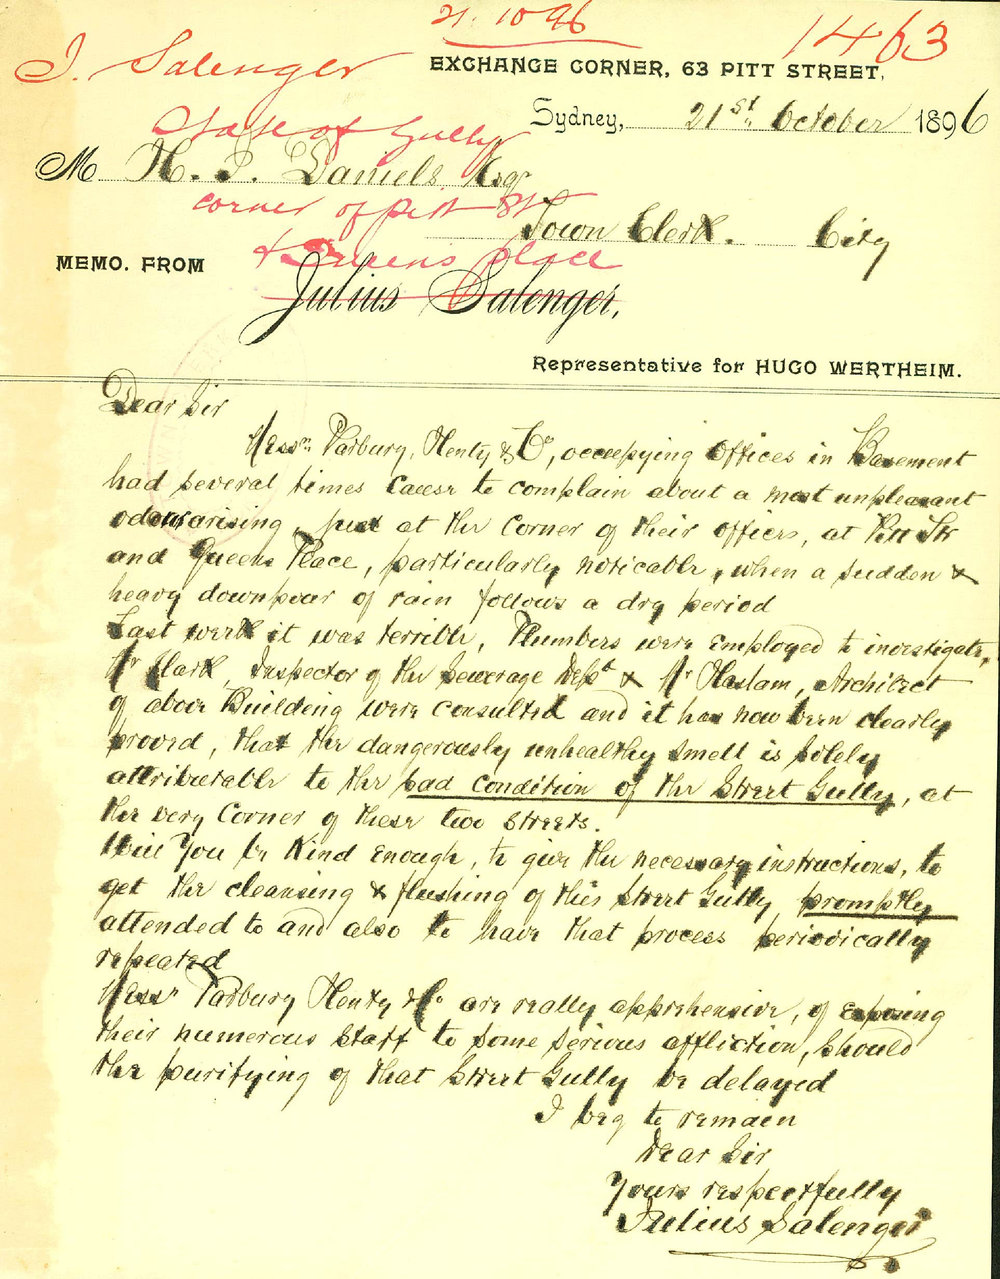 21.10 96
1463
J. Salenger
EXCHANGE CORNER, 63 PITT STREET,
Sydney, 21st October 1896
State of Gully
M H. J. Daniels Esqr
corner of Pitt St
Town Clerk. City
& Queens place
MEMO. FROM
Julius Salenger,
Representative for HUGO WERTHEIM.
Dear Sir
Messrs Parbury, Henty & Co, occupying Offices in Basement
had several times cause to complain about a most unpleasant
odour arising, just at the corner of their offices, at Pitt Str
and Queens Place, particularly noticable, when a sudden &
heavy downpour of rain follows a dry period
Last week it was terrible, Plumbers were employed to investigate,
Mr Clark, Inspector of the Sewerage Dept & Mr Haslam, Architect
of above Building were consulted and it has now been clearly
proved, that the dangerously unhealthy smell is solely
attributable to the bad condition of the Street Gully, at
the very Corner of these two streets.
Will You be Kind Enough, to give the necessary instructions, to
get the cleansing & flushing of this Street Gully promptly
attended to and also to have that process periodically
repeated
Messrs Parbury Henty & Co are really apprehensive, of exposing
their numerous staff to some serious affliction, should
the purifying of that Street Gully be delayed
I beg to remain
Dear Sir
Yours respectfully
Julius Salenger